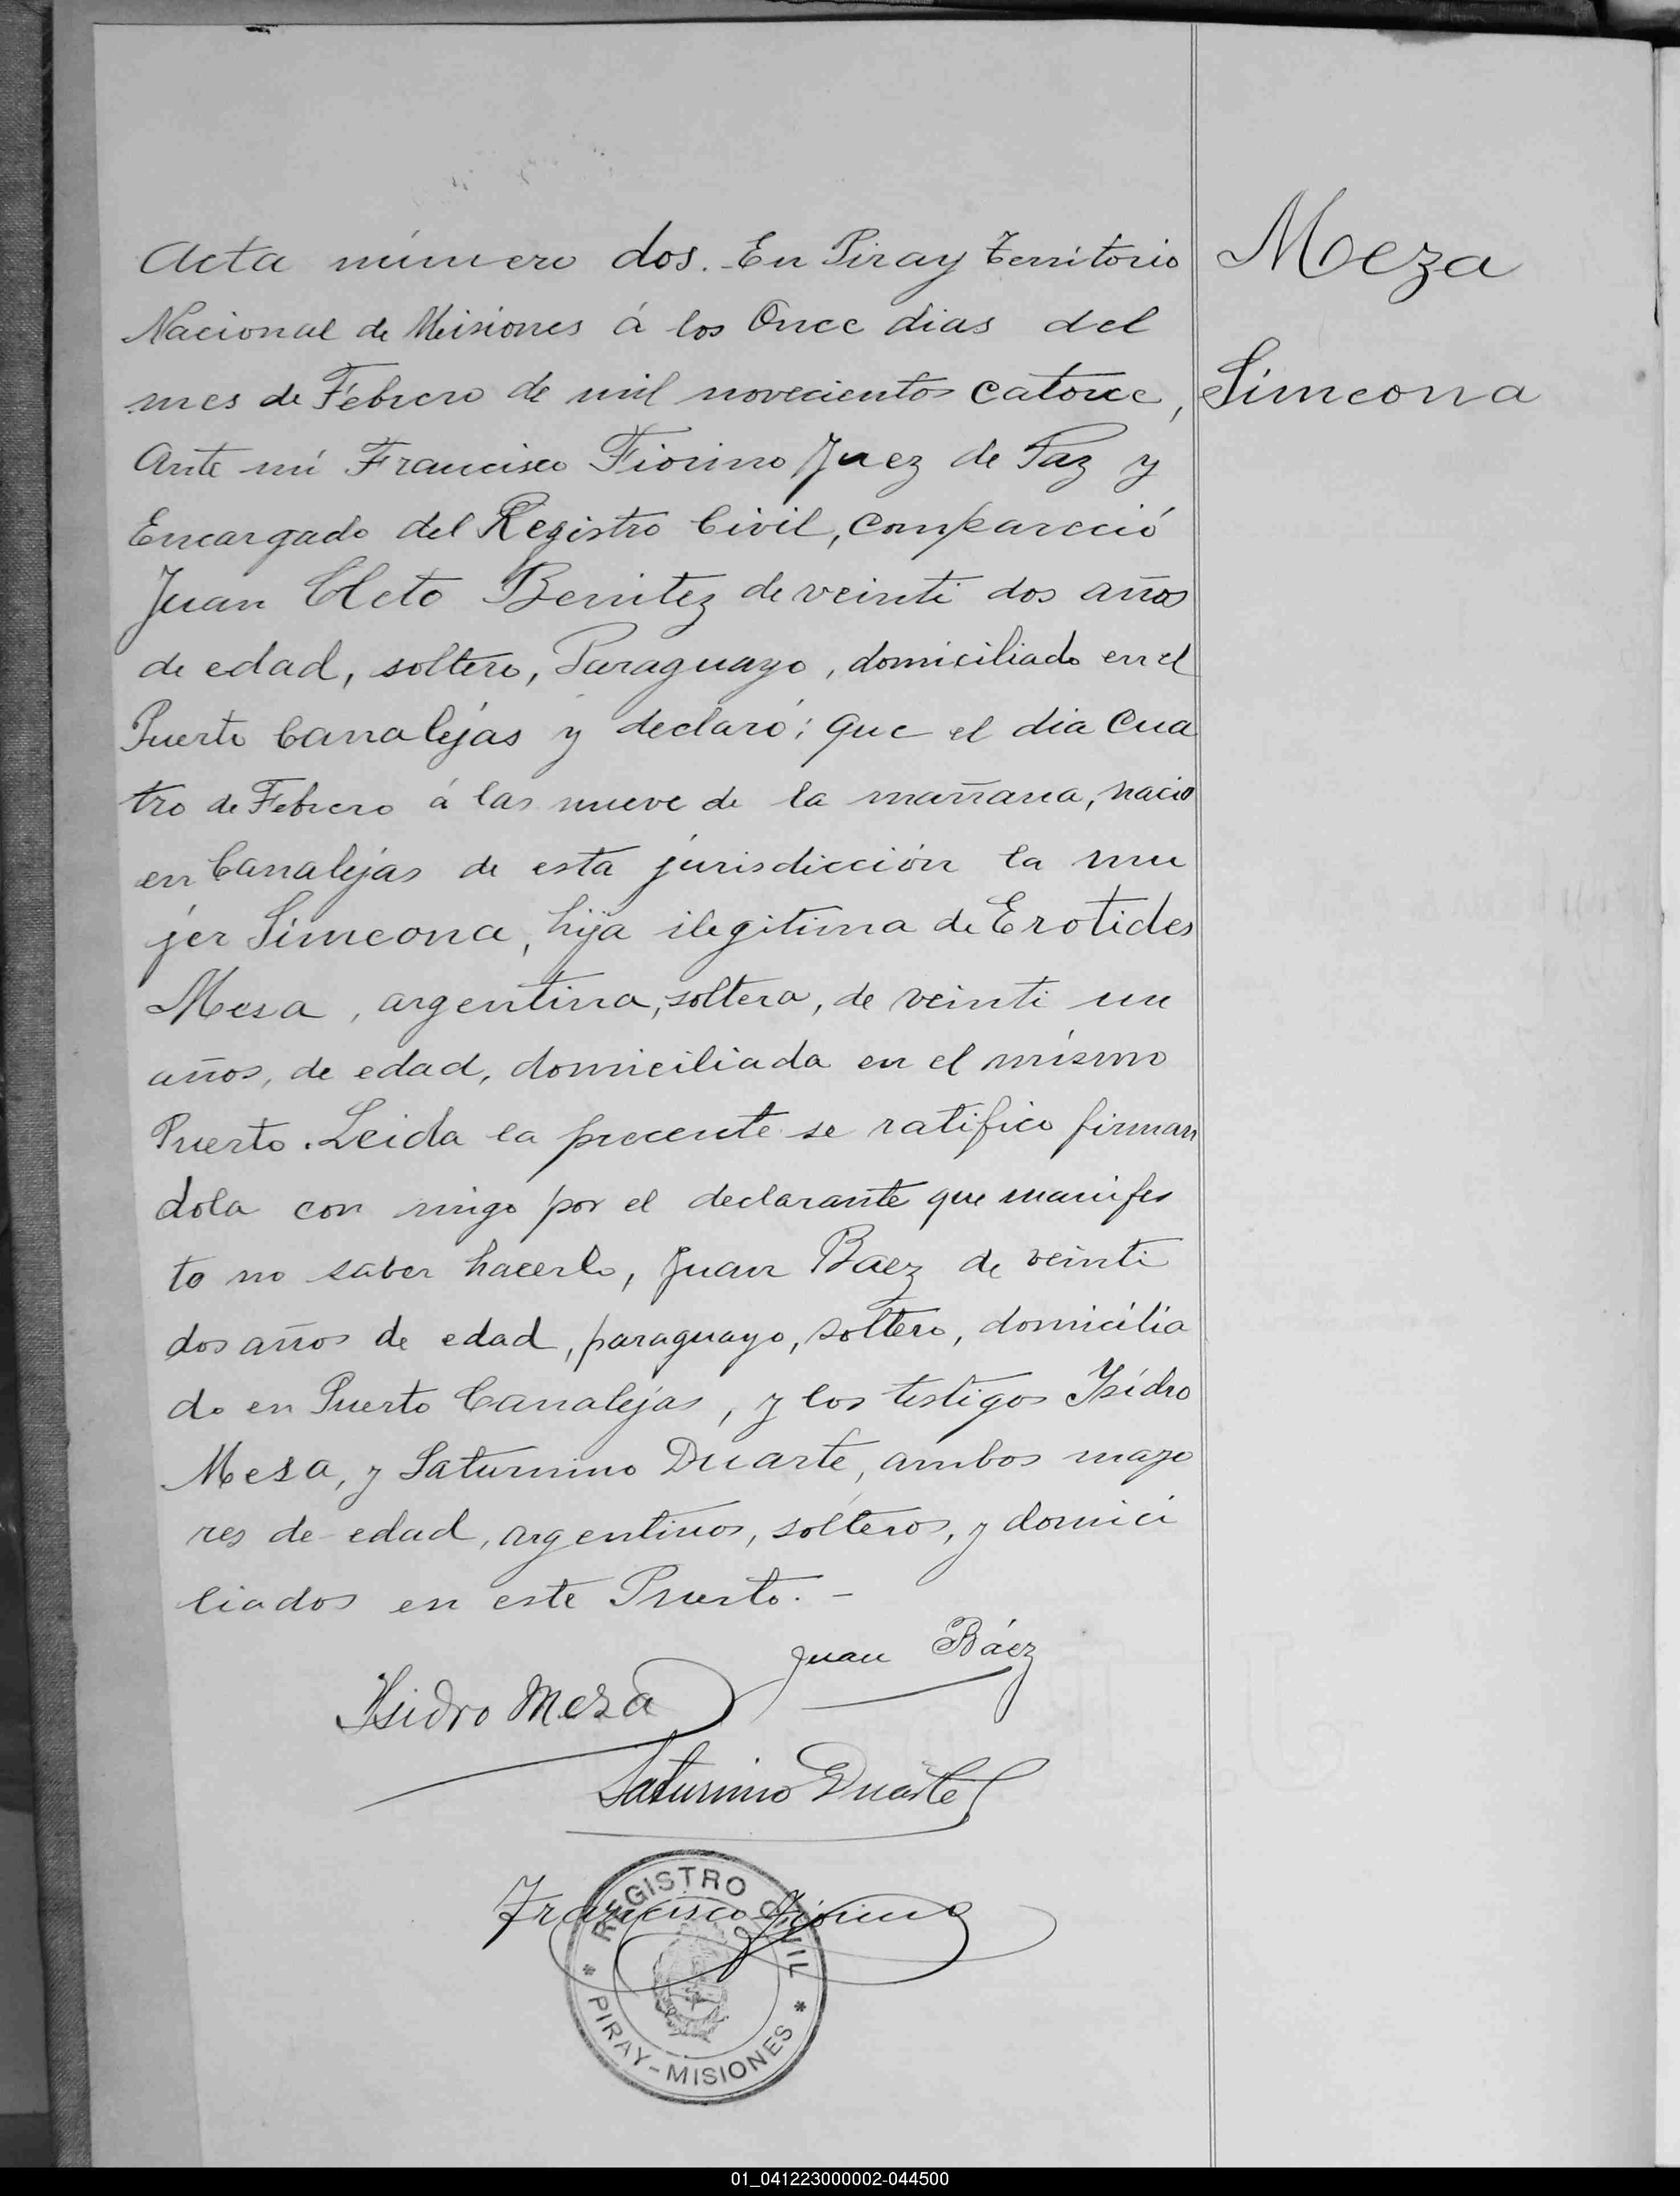 Acta número dos. En Piray Territorio
Nacional de Misiones á los Once dias del
mes de Febrero de mil novecientos catorce,
Ante mi Francisco Fiorino Juez de Paz y
Encargado del Registro Civil, compareció
Juan Cleto Benitez de veinti dos años
de edad, soltero, Paraguayo, domiciliado en el
Puerto Canalejas y declaró; que el dia Cua
tro de Febrero á las nueve de la mañana, nacio
en Canalejas de esta jurisdicción la mu
jer Simeona, hija ilegitima de Erotides
Mesa, argentina, soltera, de veinti un
años, de edad, domiciliada en el mismo
Puerto. Leida la precente se ratifico firman
dola con migo por el declarante que manifes
to no saber hacerlo, Juan Baez de veinti
dos años de edad, paraguayo, soltero, domicilia
do en Puerto Canalejas, y los testigos Ysidro
Mesa, y Saturnino Duarte, ambos mayo
res de edad, argentinos, solteros, y domici
liados en este Puerto. -
Juan Báez
Ysidro Meza
Saturnino Duarte
Francisco Fiorino
REGISTRO CIVIL
* PIRAY-MISIONES *
Meza
Simeona
01_041223000002-044500